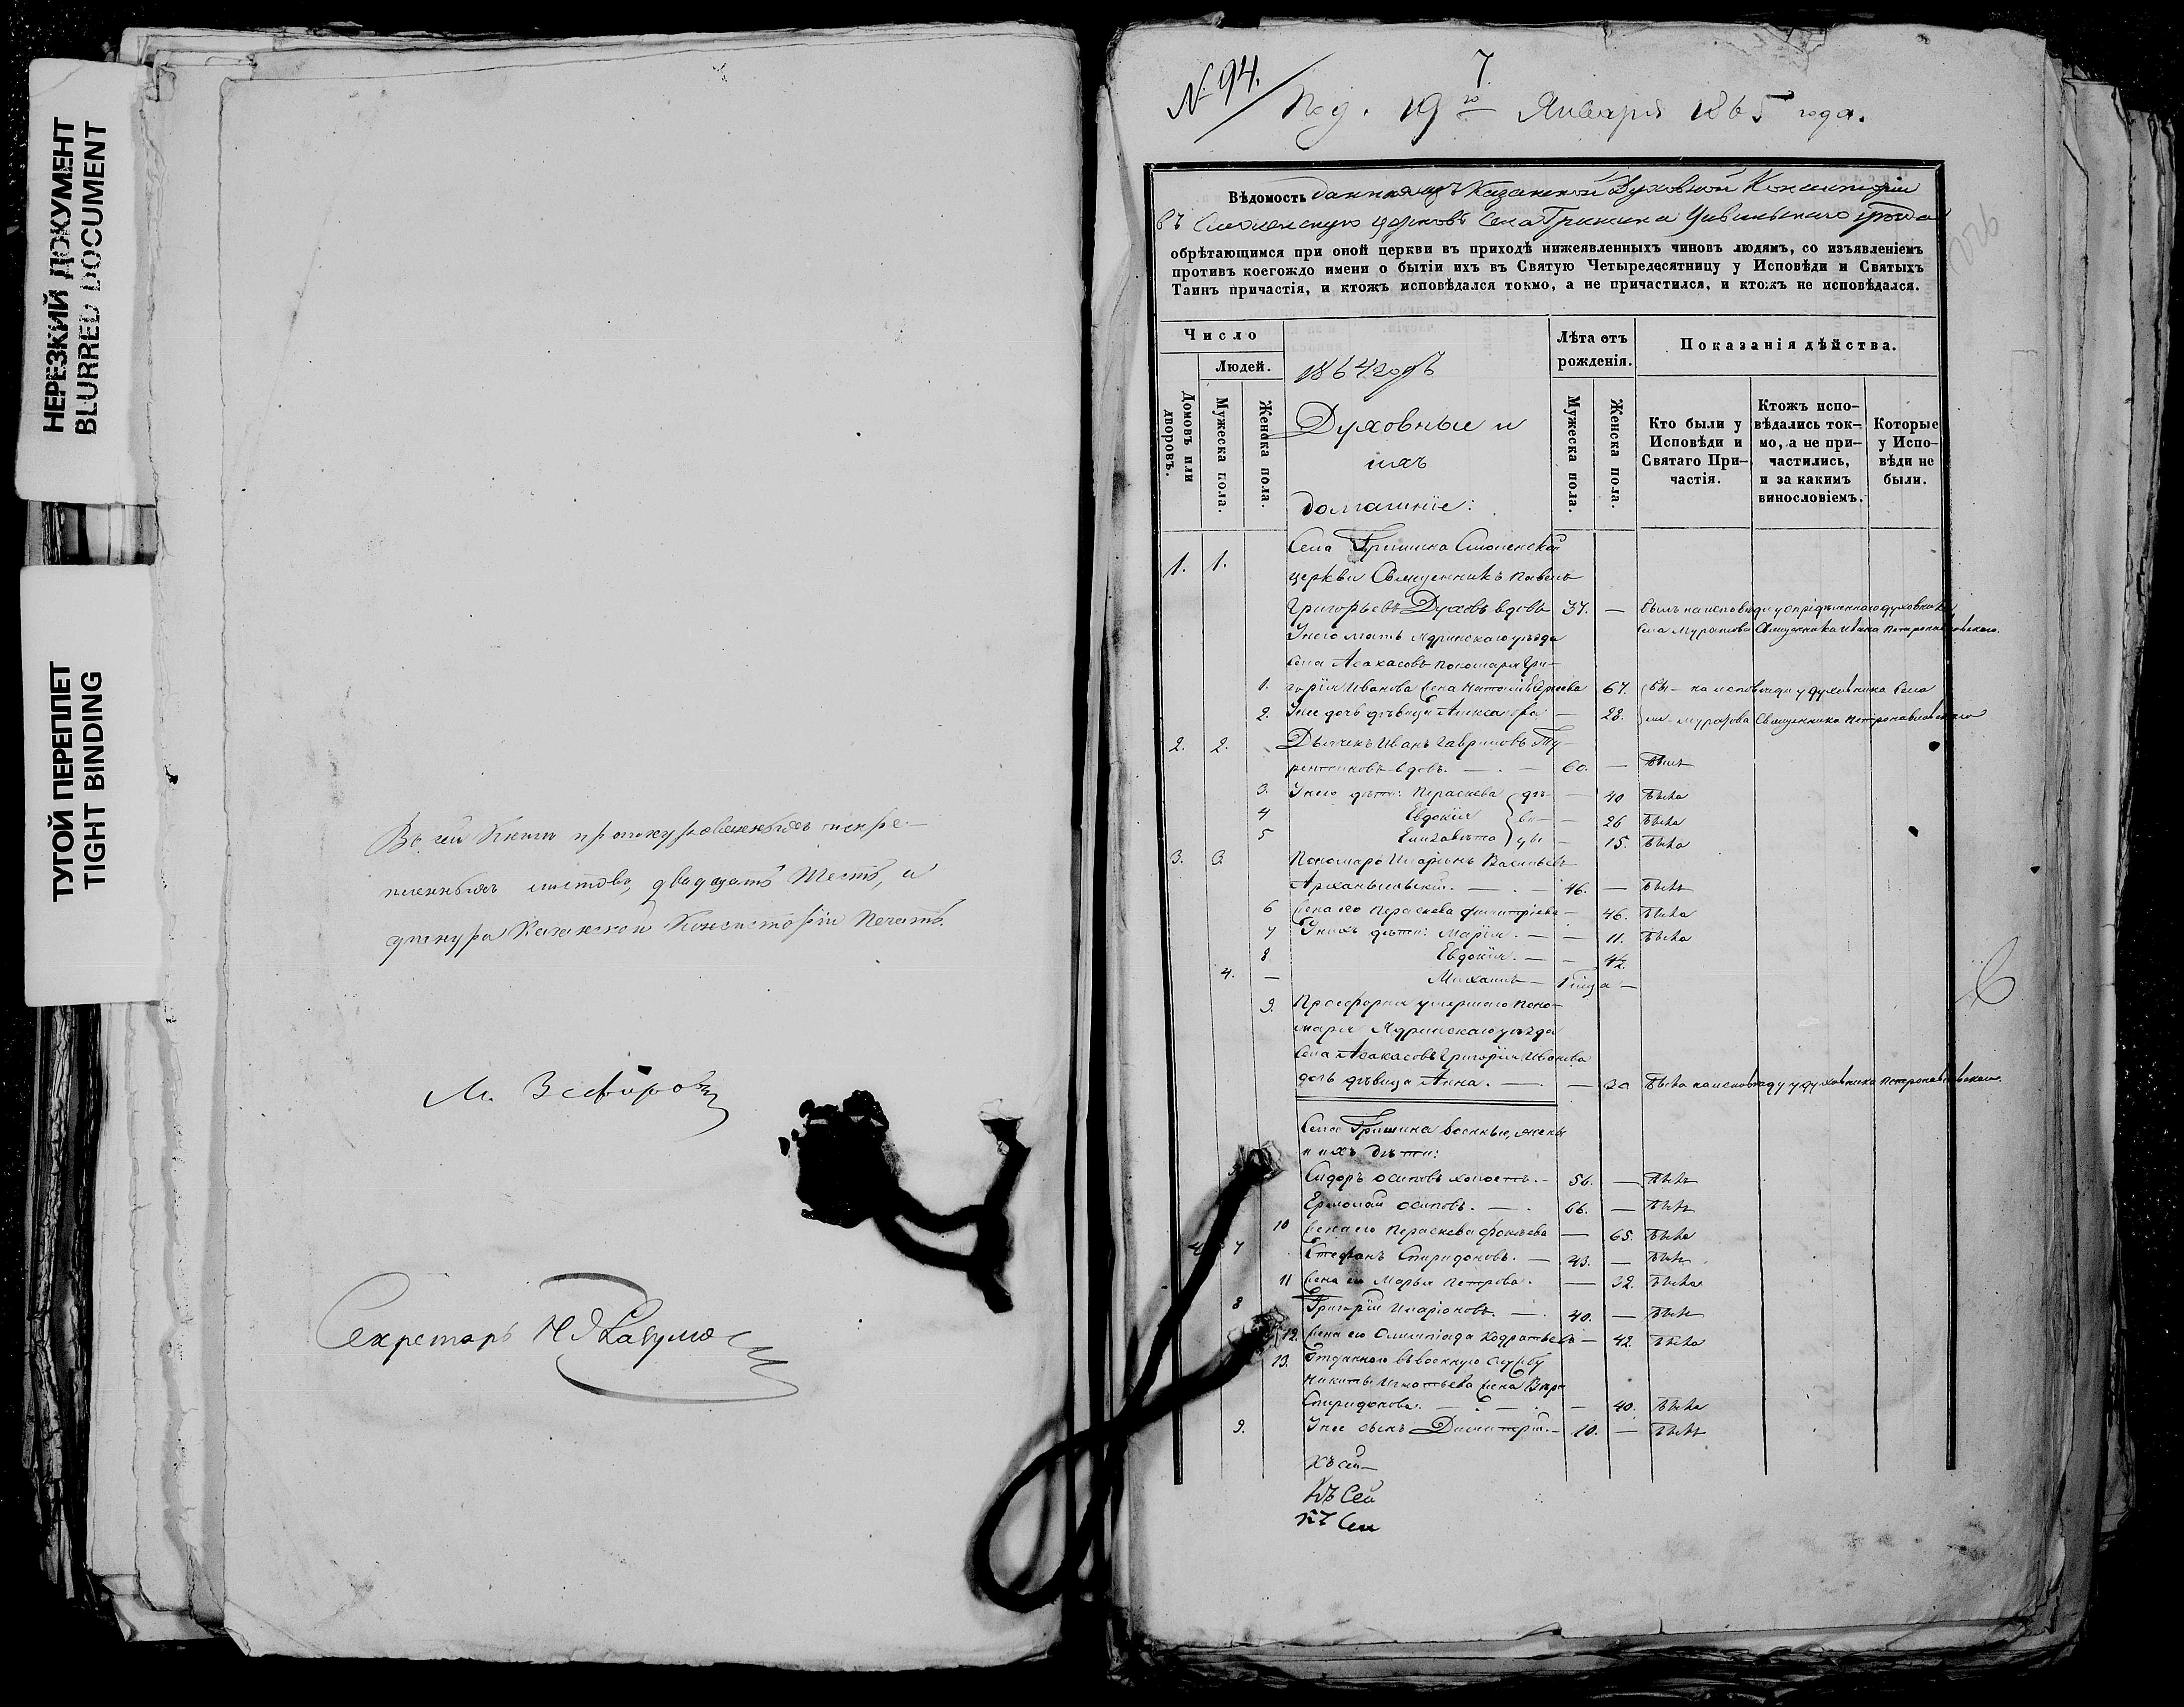 НЕРЕЗКИЙ ДОКУМЕНТ
BLURRED DOCUMENT
ТУГОЙ ПЕРЕПЛЕТ
TIGHT BINDING
Въ сей Книгѣ прошнурованныхъ и скрѣ-
пленныхъ листовъ, двадцать шесть, а
у шнура Казанской Консисторіи Печать.
М. Зефировъ
Секретарь
№ 94.
7
Под. 19го Января 1865 года.
Вѣдомость данная изъ Казанской Духовной Консисторіи
въ Смоленскую церковь села Гришина Цивильскаго уѣзда
обрѣтающимся при оной церкви въ приходѣ нижеявленныхъ чиновъ людямъ, со изъявленіемъ
противъ коегождо имени о бытіи ихъ въ Святую Четыредесятницу у Исповѣди и Святыхъ
Таинъ причастія, и ктожъ исповѣдался токмо, а не причастился, и ктожъ не исповѣдался.
Число
Людей.
Домовъ или дворовъ.
Мужеска пола.
Женска пола.
1864 годъ
Духовные и
ихъ
домашніе:
Лѣта отъ рожденія.
Мужеска пола.
Женска пола.
Показанія дѣйства.
Кто были у Исповѣди и Святаго Причастія.
Ктожъ исповѣдались токмо, а не причастились, и за какимъ винословіемъ.
Которые у Исповѣди не были.
Села Гришина Смоленской
1. 1. церкви Священникъ Павелъ
Григорьевъ Духовъ вдовъ 37. — былъ на исповѣди у опредѣленнаго духовника
У него мать Ядринскаго уѣзда села Муратова Священника Ивана Петропавловскаго.
села Асакасовъ пономаря Гри-
1. горія Иванова жена Наталія 67. бы- на исповѣди у духовника села
2. У нее дочь дѣвица Александра — 28. ли Муратова Священника Петропавловскаго
2. 2. Дьячекъ Иванъ Гавриловъ
вдовъ. — 60. — былъ
3. У него дѣти: Параскева дѣ- — 40 была
4 Евдокія ви- — 26 была
5 Елизавета цы — 15. была
3. 3. Пономарь Иларіонъ Васильевъ
Архангельскій. — 46. — былъ
6 жена его Параскева Димитріева — 46. была
7 У нихъ дѣти: Марія. — — 11. была
8 Евдокія. — —
4. — Михаилъ — 1 года —
9. Просфорня умершаго Поно-
маря Ядринскаго уѣзда
села Асакасовъ Григорія Иванова
дочь дѣвица Анна. — — 30 была на исповѣди у духовника Петропавловскаго.
Села Гришина военные, жены
и ихъ дѣти:
5 Сидоръ Осиповъ холостъ. — 56. — былъ
Ермолай Осиповъ. — 66. — былъ
10 жена его Параскева Фокѣева — 65. была
4 7 Стефанъ Спиридоновъ. — 43. — былъ
11 жена его Марья Петрова. — 32. была
8 Григорій Иларіоновъ. — 40. — былъ
12. жена его Олимпіада Кодратьева — 42. была
13. Отданнаго въ военную службу
Никиты Игнатьева жена Вѣра
Спиридонова. — — 40. была
9. У нее сынъ Димитрій. — 10. — былъ
Къ сей
Къ Сей
Къ Сей